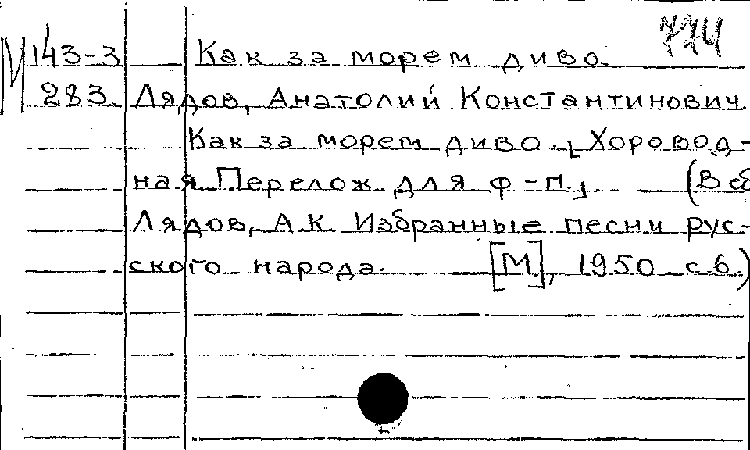 М 143-3 Как за морем диво. 774
283 Лядов, Анатолий Константинович.
Как за морем диво. [Хоровод-
ная. Перелож. для ф-п.] (В сб
Лядов, А.К. Избранные песни рус-
ского народа. [М], 1950 с 6.)